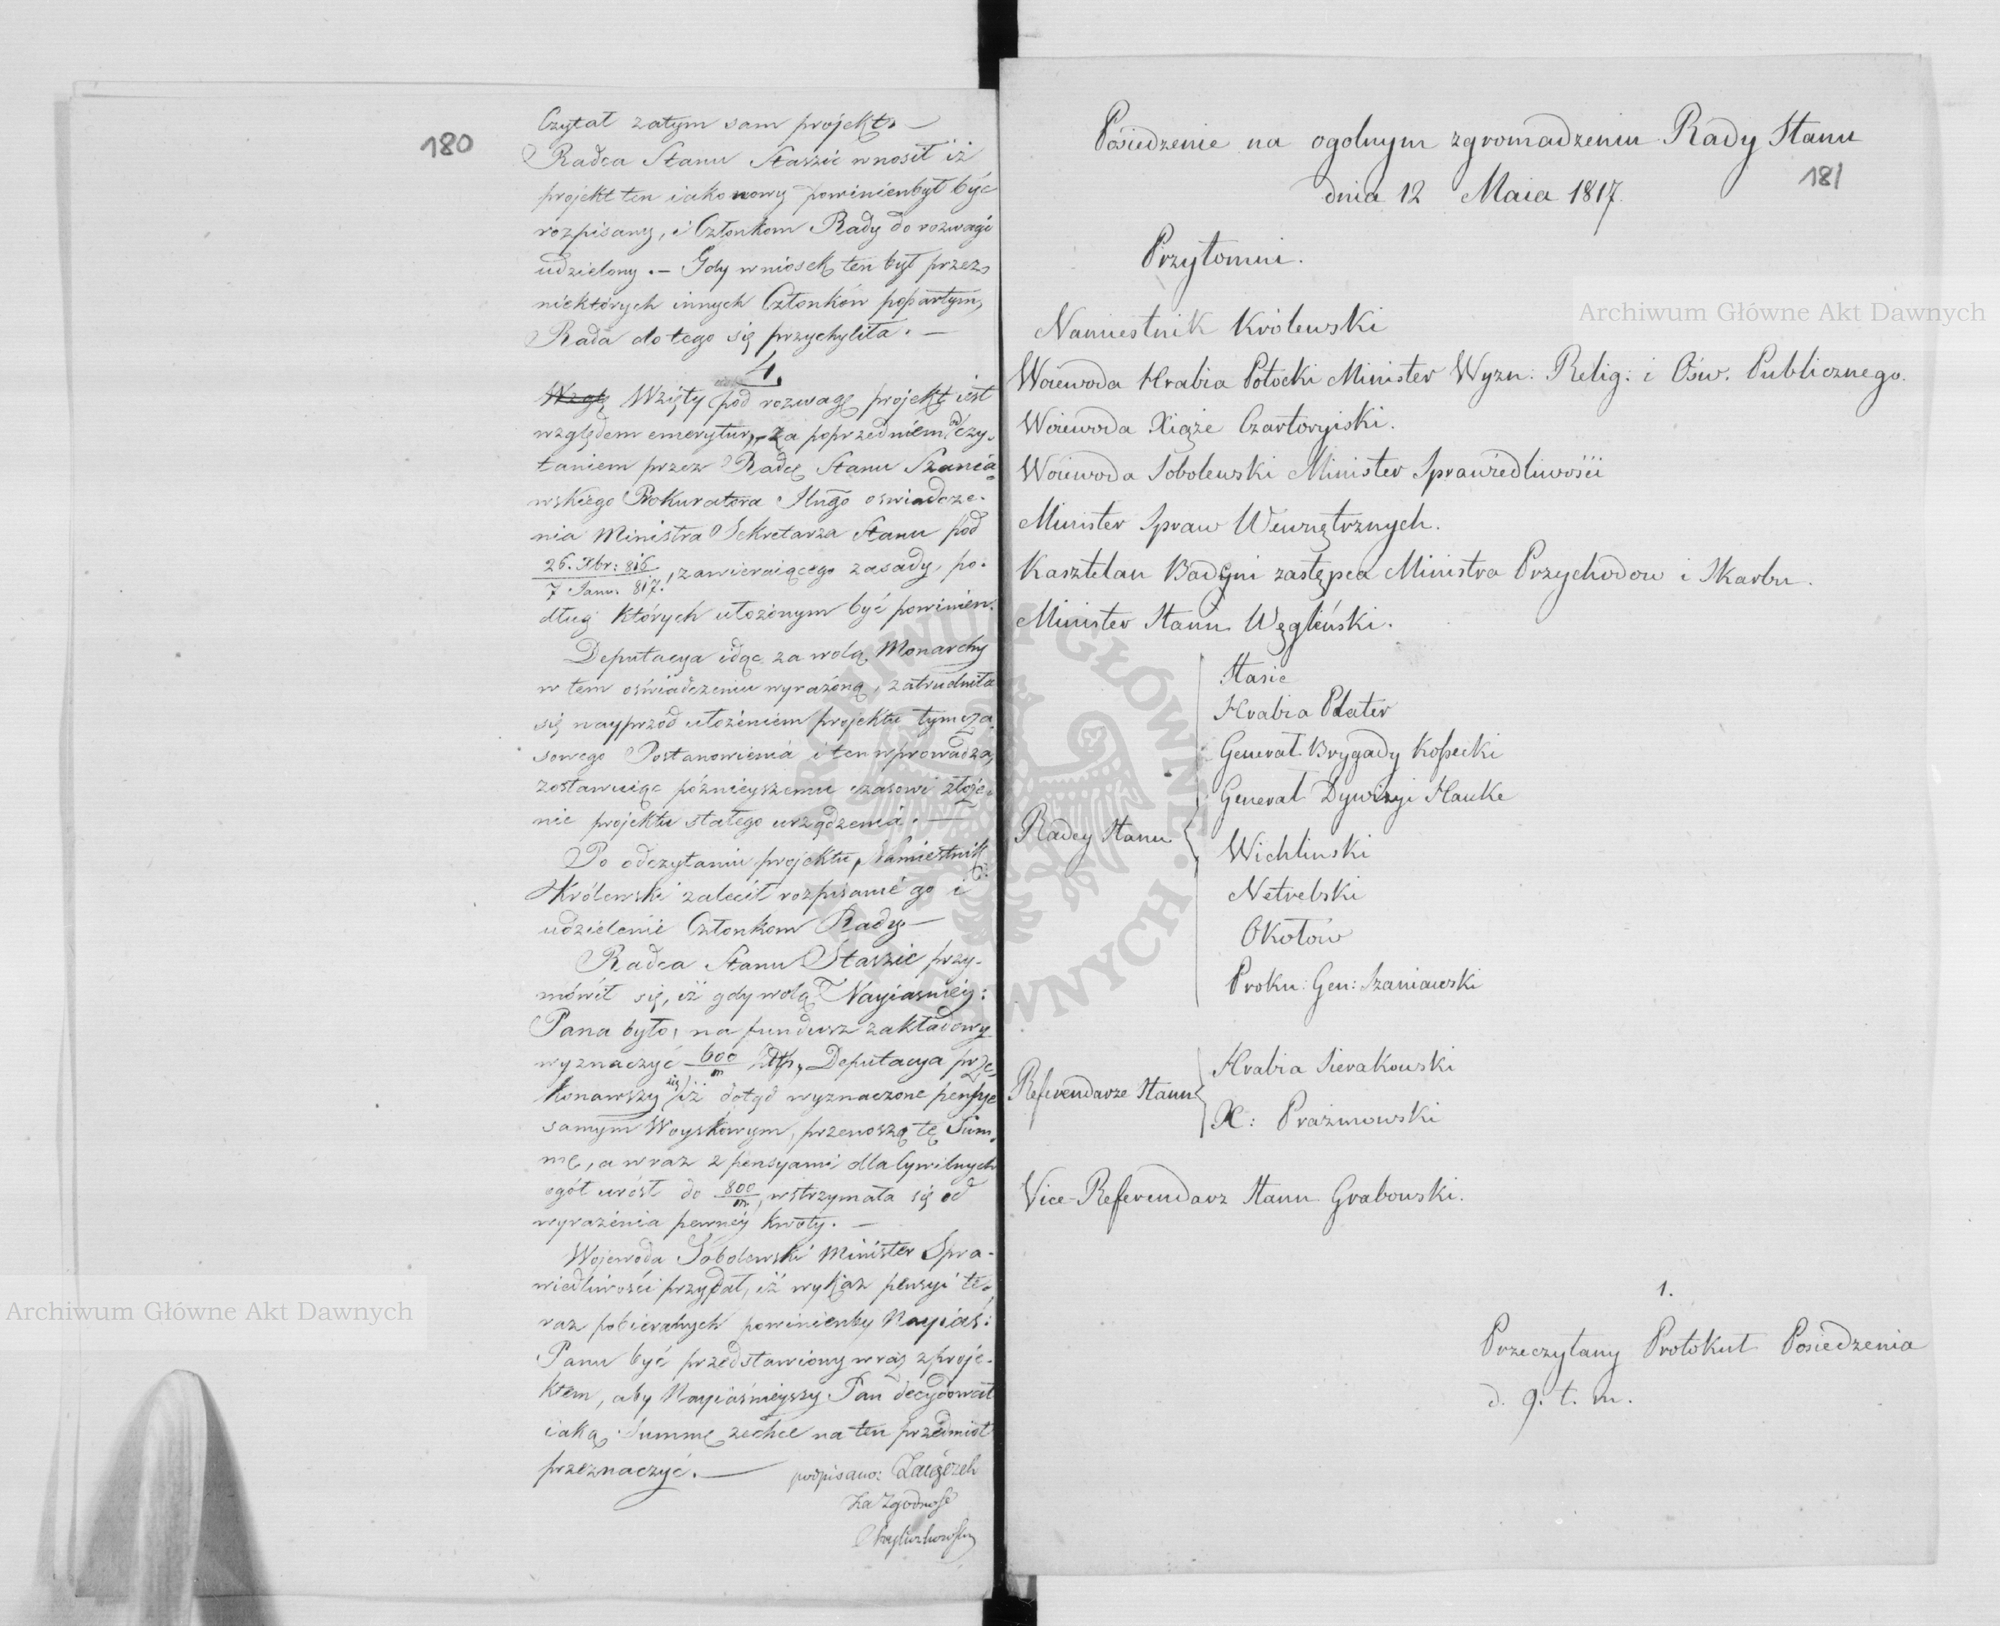 180
Czytał zatym sam projekt. —
Radca Stanu Staszic wnosił iż
projekt ten iako nowy powinienbył być
rozpisany, i Członkom Rady do rozwagi
udzielony. — Gdy wniosek ten był przez
niektórych innych Członków popartym,
Rada do tego się przychyliła. —
4.
Wzięty pod rozwagę projekt iest
względem emerytur, za poprzedniem odczy-
taniem przez Radcę Stanu Szania-
wskiego Prokuratora oświadcze-
nia Ministra Sekretarza Stanu pod
26. Xbr: 816
7 Janu. 817. zawieraiącego zasady, po-
dług których ułożonym być powinien.
Deputacya idąc za wolą Monarchy
w tem oświadczeniu wyrażoną, zatrudniła
się nayprzód ułożeniem projektu tymcza-
sowego Postanowienia i ten wprowadza,
zostawuiąc późnieyszemu czasowi złoże-
nie projektu stałego urządzenia. —
Po odczytaniu projektu, Namiestnik
Królewski zalecił rozpisanie go i
udzielenie Członkom Rady —
Radca Stanu Staszic przy-
mówił się, iż gdy wolą Nayiaśniey:
Pana było, na fundusz zakładowy
wyznaczyć 600/m Złtp, Deputacya prze-
konawszy się iż dotąd wyznaczone pensye
samym Woyskowym, przenoszą tę Sum-
mę, a wraz z pensyami dla Cywilnych
ogół urósł do 800/m, wstrzymała się od
wyrażenia pewnéy kwoty. —
Wojewoda Sobolewski Minister Spra-
wiedliwości przydał, iż wykaz pensyi te-
raz pobieranych powinienby Nayiaś:
Panu być przedstawiony wraz z proje-
ktem, aby Nayiaśnieyszy Pan decydował
iaką Summę zechce na ten przedmiot
przeznaczyć. — podpisano: Zaiączek
Za Zgodność
Posiedzenie na ogolnym zgromadzeniu Rady Stanu
181
dnia 12 Maia 1817.
Przytomni.
Namiestnik Królewski
Woiewoda Hrabia Potocki Minister Wyzn: Relig: i Ośw. Publicznego.
Woiewoda Xiąże Czartoryiski.
Woiewoda Sobolewski Minister Sprawiedliwości
Minister Spraw Wewnętrznych.
Kasztelan Badeni zastępca Ministra Przychodow i Skarbu.
Minister Stanu Węgleński.
Radcy Stanu
Stasic
Hrabia Plater
Generał Brygady Kossecki
Generał Dywizyi Hauke
Wichlinski
Netrebski
Okołow
Proku: Gen: Szaniawski
Referendarze Stanu
Hrabia Sierakowski
X: Prażmowski
Vice-Referendarz Stanu Grabowski.
1.
Przeczytany Protokuł Posiedzenia
d. 9. t. m.
Archiwum Główne Akt Dawnych
Archiwum Główne Akt Dawnych
ARCHIWUM GŁÓWNE AKT DAWNYCH